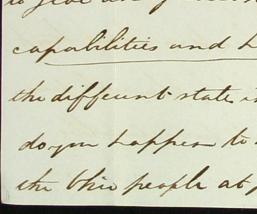 to give any
capabilities and
the different states
do you happen to
the Ohio people at